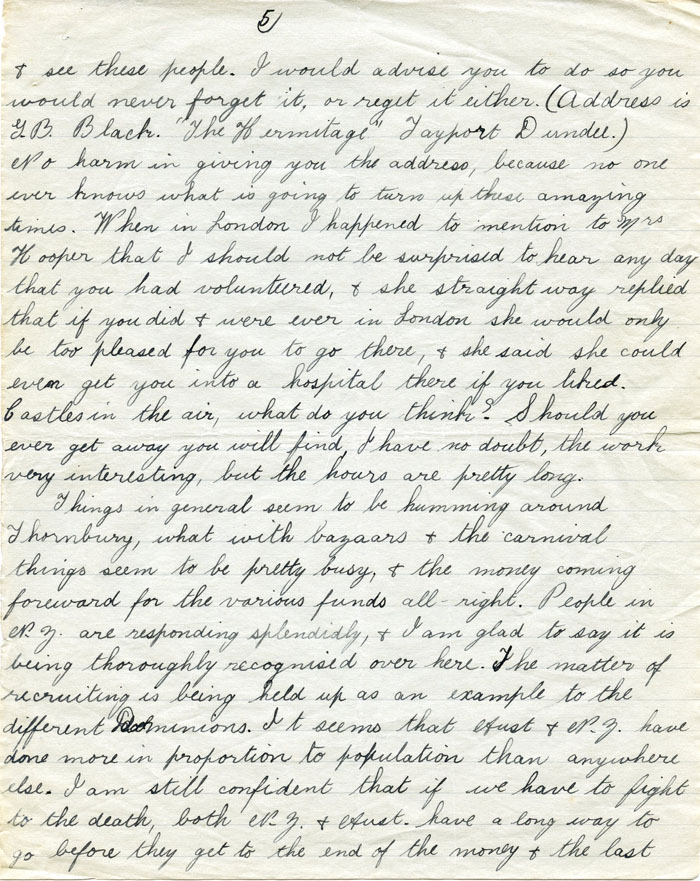 5
& see these people. I would advise you to do so you
would never forget it, or reget it either. (Address is
G.B. Black. "The Hermitage" Tayport Dundee.)
No harm in giving you the address, because no one
ever knows what is going to turn up these amazing
times. When in London I happened to mention to Mrs
Hooper that I should not be surprised to hear any day
that you had volunteered, & she straight way replied
that if you did & were ever in London she would only
be too pleased for you to go there, & she said she could
even get you into a hospital there if you liked.
Castles in the air, what do you think? Should you
ever get away you will find, I have no doubt, the work
very interesting, but the hours are pretty long.
Things in general seem to be humming around
Thornbury, what with bazaars & the carnival
things seem to be pretty busy, & the money coming
foreward for the various funds all-right. People in
N.Z. are responding splendidly, & I am glad to say it is
being thoroughly recognised over here. The matter of
recruiting is being held up as an example to the
different Dominions. It seems that Aust & N.Z. have
done more in proportion to population than anywhere
else. I am still confident that if we have to fight
to the death, both N.Z. & Aust. have a long way to
go before they get to the end of the money & the last